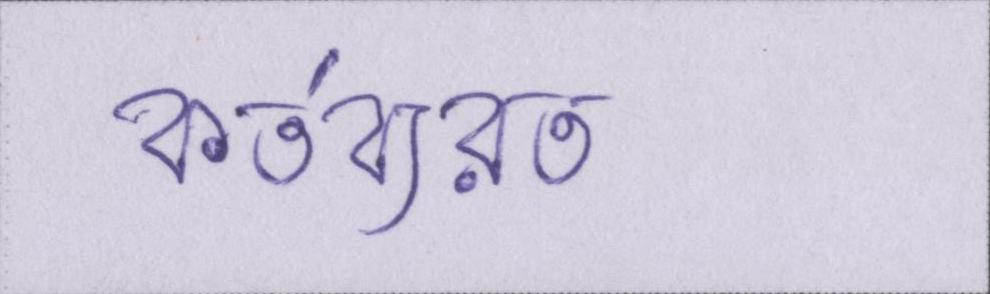 কর্তব্যরত